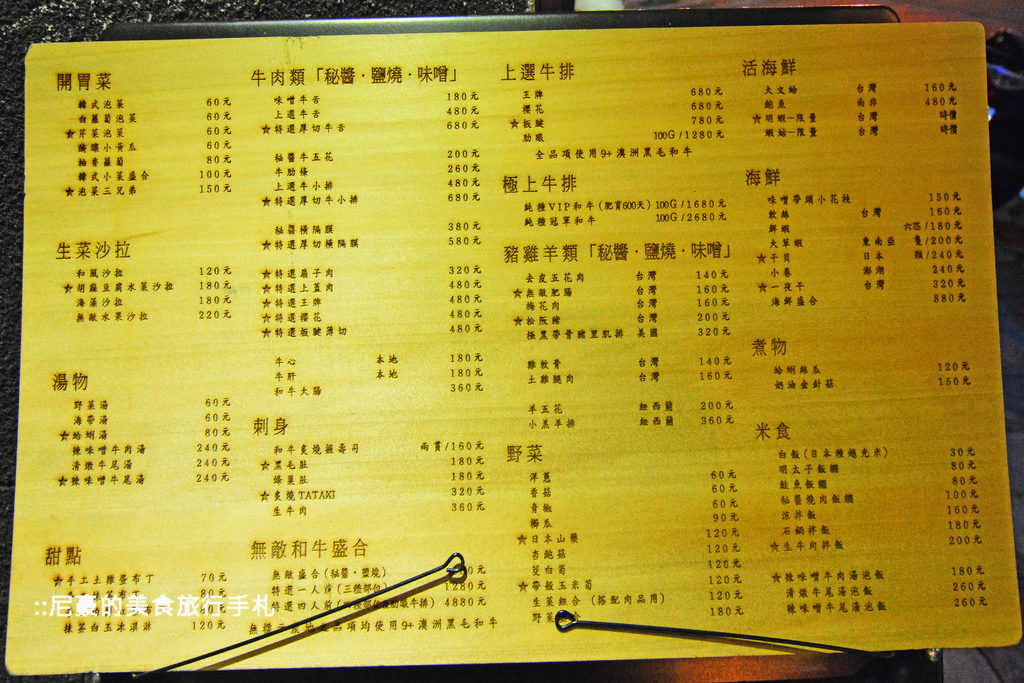 開胃菜
韓式泡菜 60元
白蘿蔔泡菜 60元
★芹菜泡菜 60元
醃漬小黃瓜 60元
柚香蘿蔔 80元
韓式小菜盛合 100元
★泡菜三兄弟 150元
生菜沙拉
和風沙拉 120元
★胡麻豆腐水菜沙拉 180元
海藻沙拉 180元
無敵水果沙拉 220元
湯物
野菜湯 60元
海帶湯 60元
★蛤蜊湯 80元
辣味噌牛肉湯 240元
清燉牛尾湯 240元
★辣味噌牛尾湯 240元
甜點
★手工土雞蛋布丁 70元
80元
抹茶白玉冰淇淋 120元
牛肉類「秘醬·鹽燒·味噌」
味噌牛舌 180元
上選牛舌 480元
★特選厚切牛舌 680元
秘醬牛五花 200元
牛肋條 260元
上選牛小排 480元
★特選厚切牛小排 680元
秘醬橫隔膜 380元
★特選厚切橫隔膜 580元
★特選扇子肉 320元
★特選上蓋肉 480元
★特選王牌 480元
★特選櫻花 480元
★特選板腱薄切 480元
牛心 本地 180元
牛肝 本地 180元
和牛大腸 360元
刺身
和牛炙燒握壽司 兩貫/160元
★黑毛肚 180元
蜂巢肚 180元
★炙燒TATAKI 320元
生牛肉 360元
無敵和牛盛合
無敵盛合(秘醬·鹽燒)
特選一人前(三種部位) 1280元
特選四人前 肋眼牛排) 4880元
品項均使用9+澳洲黑毛和牛
上選牛排
王牌 680元
櫻花 680元
★板腱 780元
肋眼 100G/1280元
全品項使用9+澳洲黑毛和牛
極上牛排
純種VIP和牛(肥育600天) 100G/1680元
純種冠軍和牛 100G/2680元
豬雞羊類「秘醬·鹽燒·味噌」
去皮五花肉 台灣 140元
★無敵肥腸 台灣 160元
梅花肉 台灣 160元
★松阪豬 台灣 200元
極黑帶骨豬里肌排 美國 320元
雞軟骨 台灣 140元
土雞腿肉 台灣 160元
羊五花 紐西蘭 200元
小羔羊排 紐西蘭 360元
野菜
洋蔥 60元
香菇 60元
青椒 60元
櫛瓜 90元
★日本山藥 120元
杏鮑菇 120元
筊白筍 120元
★帶殼玉米筍 120元
生菜組合(搭配肉品用) 120元
野菜 合 180元
活海鮮
大文蛤 台灣 160元
鮑魚 南非 480元
★明蝦—限量 台灣 時價
蝦蛄—限量 台灣 時價
海鮮
味噌帶頭小花枝 150元
軟絲 台灣 160元
鮮蝦 六匹/180元
大草蝦 東南亞 隻/200元
★干貝 日本 顆/240元
小卷 澎湖 240元
★一夜干 台灣 320元
海鮮盛合 880元
煮物
蛤蜊絲瓜 120元
奶油金針菇 150元
米食
白飯(日本種越光米) 30元
明太子飯糰 80元
鮭魚飯糰 80元
秘醬燒肉飯糰 100元
涼拌飯 160元
石鍋拌飯 180元
★生牛肉拌飯 200元
★辣味噌牛肉湯泡飯 180元
清燉牛尾湯泡飯 260元
辣味噌牛尾湯泡飯 260元
::尼豪的美食旅行手札